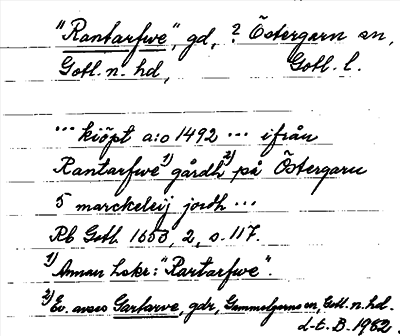 "Rantarfwe", gd, ? Östergarn sn,
Gotl. n. hd, Gotl. l.
... kiöpt a:o 1492 ... ifrån
Rantarfwe 1) gårdh 2) på Östergarn
5 marckeleij jordh ...
Rb Gotl. 1653, 2, s. 117.
1) Annan lokr: "Rartarfwe".
2) Ev. avses Gartarve, gdr, Gammelgarns sn, Gotl. n. hd.
L-t. B. 1962.